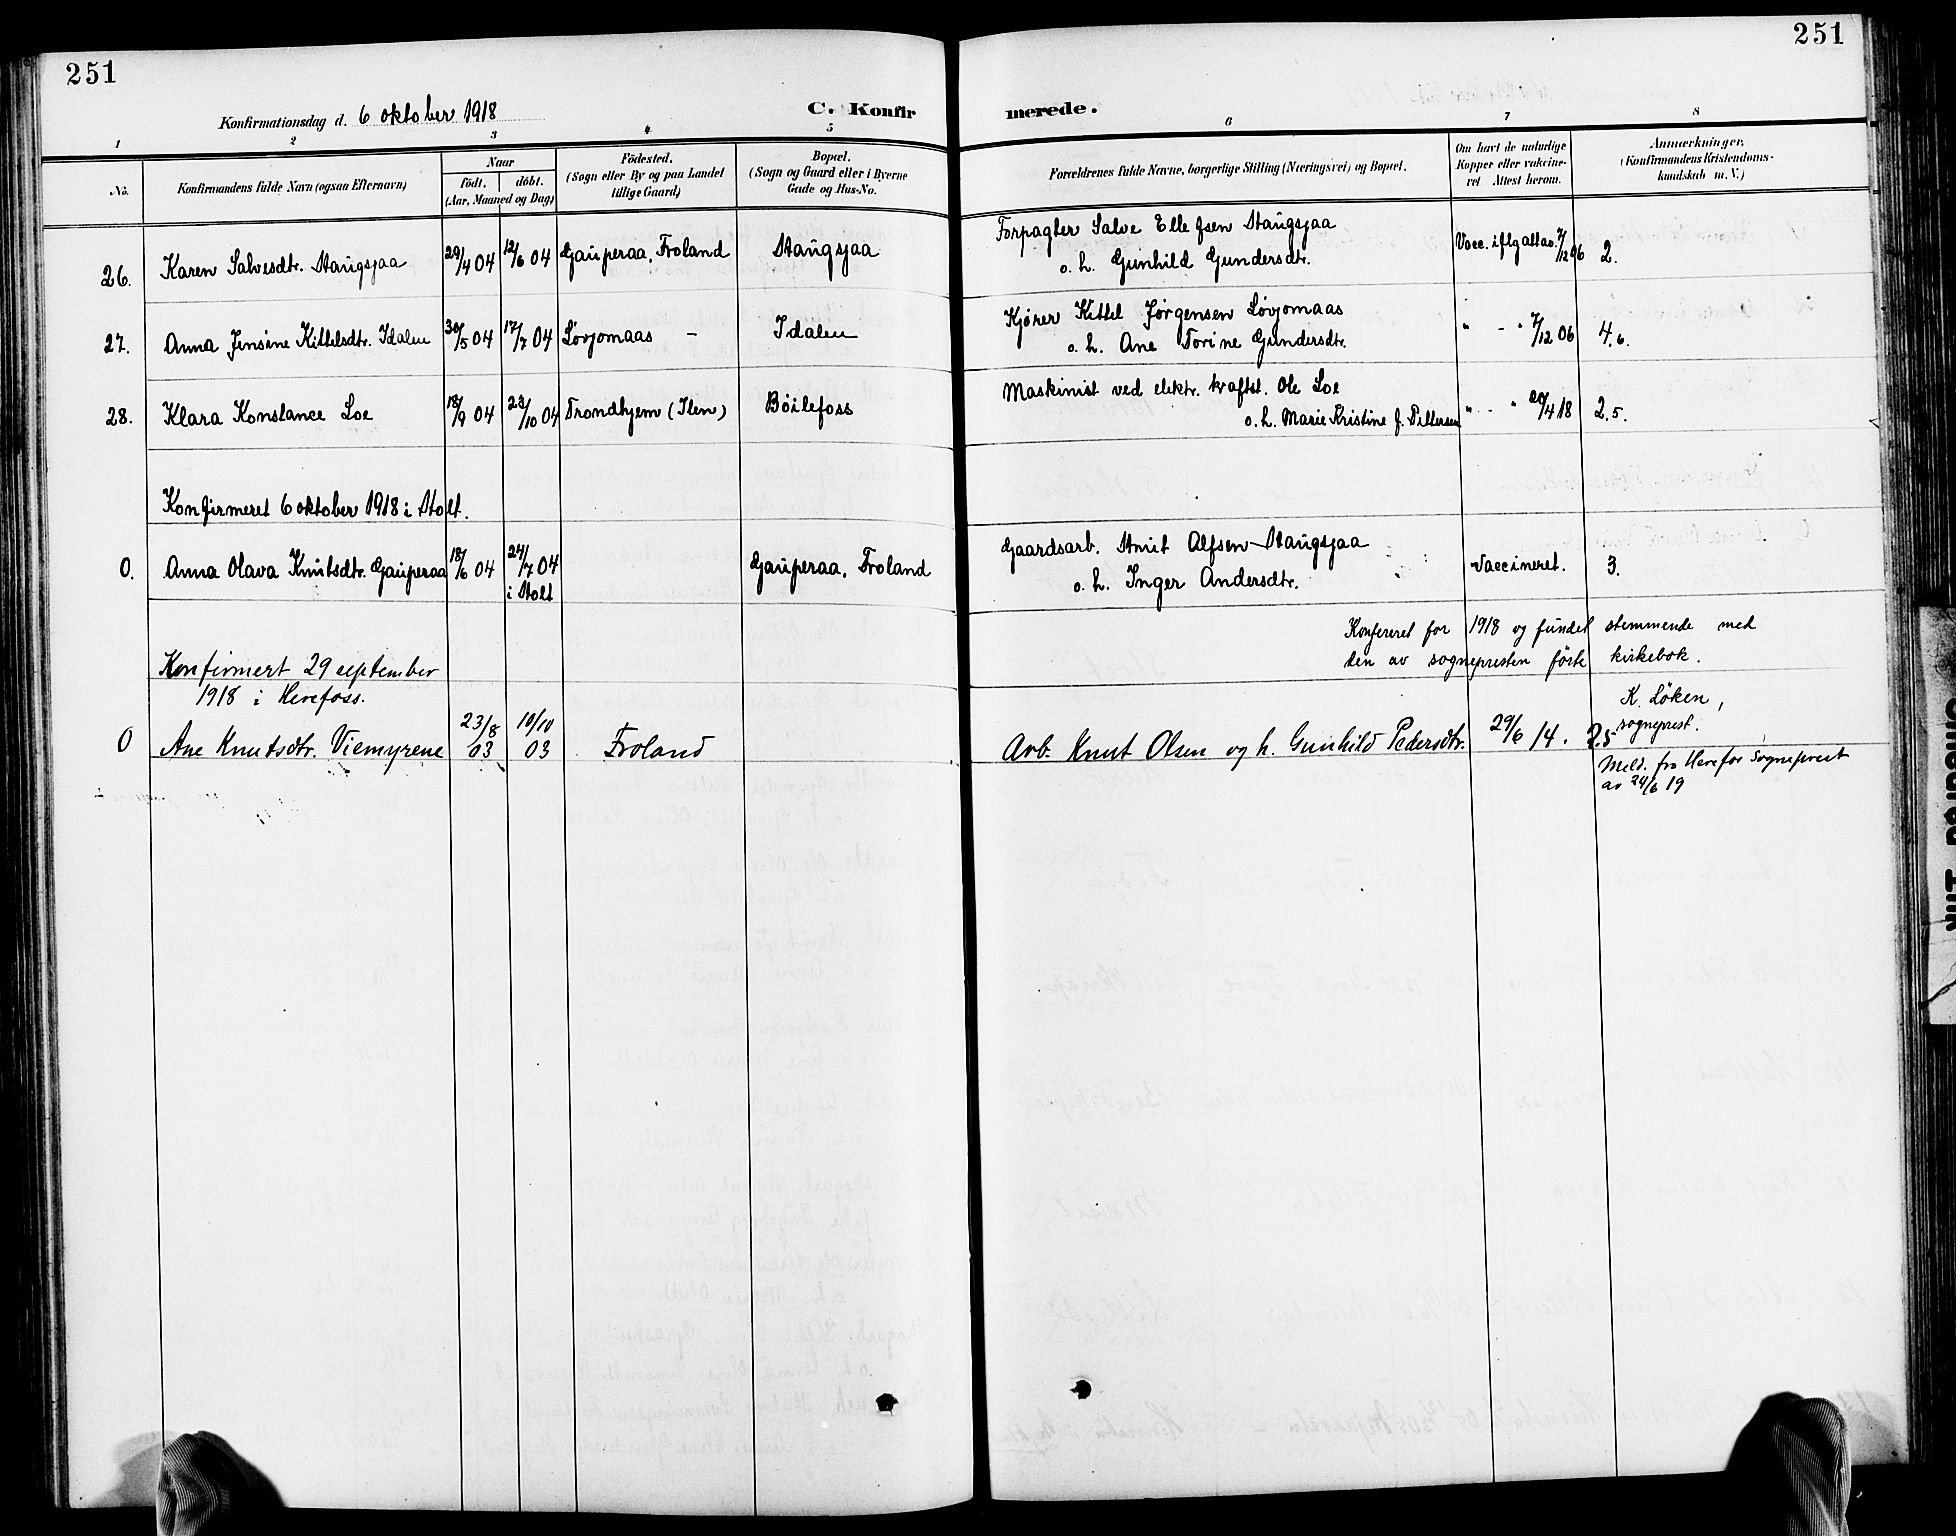 251
251
Konfirmationsdag d. 6 oktober 1918
C. Konfirmerede.
1 2 3 4 5 6 7 8
No.
Konfirmandens fulde Navn (ogsaa Efternavn)
Naar
födt. döbt.
(Aar, Maaned og Dag)
Födested.
(Sogn eller By og paa Landet
tillige Gaard)
Bopæl.
(Sogn og Gaard eller i Byerne
Gade og Hus-No.
Forældrenes fulde Navne, borgerlige Stilling (Næringsvei) og Bopæl.
Om havt de naturlige
Kopper eller vakcine-
ret Attest herom.
Anmærkninger,
(Konfirmandens Kristendoms-
kundskab m. V.)
26. Karen Salvesdtr. Staugsjaa 29/4 04 12/6 04 Gauperaa, Froland Staugsjaa Forpagter Salve Ellefsen Staugsjaa
o. h. Gunhild Gundersdtr. Vacc. iflg attav. 7/12 06 2.
27. Anna Jensine Kittelsdtr. Idalen 30/5 04 17/7 04 Lövjomaas – Idalen Kjörer Kittil Jørgensen Lövjomaas
o. h. Ane Torine Gundersdtr. " - " 7/12 06 4.6.
28. Klara Konstance Loe 18/9 04 23/10 04 Trondhjem (Ilen) Böilefoss Maskinist ved elektr. kraftst. Ole Loe
o. h. Marie Kristine J. Pettersen " - " 20/4 18 2.5.
Konfirmeret 6 oktober 1918 i Stolt.
0. Anna Olava Knutsdtr. Gauperaa 18/6 04 24/7 04
i Stolt Gauperaa, Froland Gaardsarb. Knut Alfsen Staugsjaa
o. h. Inger Andersdtr. Vaccineret. 3.
Konfereret for 1918 og fundet stemmende med
den av sognepresten förte kirkebok.
K. Löken,
sogneprest.
Konfirmert 29 september
1918 i Herefoss.
0 Ane Knutsdtr. Viemyrene 23/8 03 10/10 03 Froland Arb. Knut Olsen og h. Gunhild Pedersdtr. 29/6 14. 2.5
Meld. fra Herefos Sogneprest
av 24/6 19